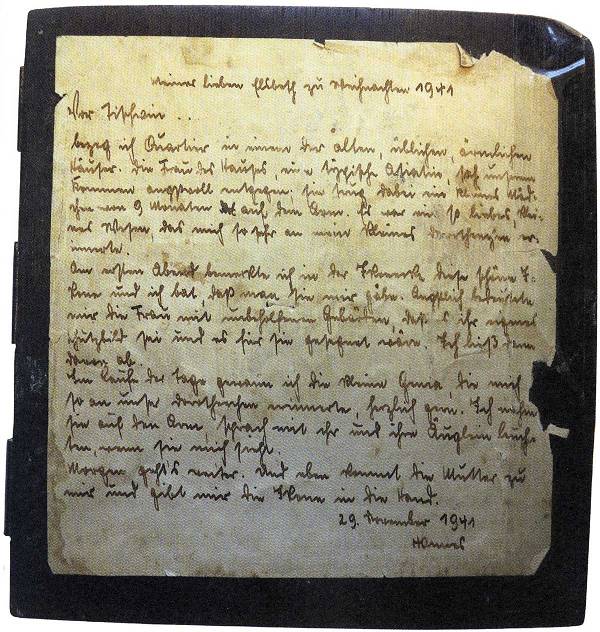 Meiner lieben Elsbeth zu Weihnachten 1941
Vor Tischwin ..
bezog ich Quartier in einem der alten, üblichen, ärmlichen
Häuser. Die Frau des Hauses, eine typische Asiatin, sah unserem
Kommen angstvoll entgegen. Sie trug dabei ein kleines Mäd-
chen von 9 Monaten auf dem Arm. Es war ein so liebes, klei-
nes Wesen, das mich so sehr an mein kleines Dorotheechen er-
innerte.
Am ersten Abend bemerkte ich in der Ikonenecke diese schöne I-
kone und ich bat, daß man sie mir gäbe. Ängstlich bedeutete
mir die Frau mit unbeholfenen Gebärden, daß es ihr eigenes
Schutzbild sei und es für sie gesegnet wäre. Ich ließ dann
davon ab.
Im Laufe der Tage gewann ich die kleine, die mich
so an unser Dorotheechen erinnerte, herzlich gern. Ich nahm
sie auf den Arm, sprach mit ihr und ihre Äuglein leuch-
ten, wenn sie mich sieht.
Morgen geht's weiter. Und eben kommt die Mutter zu
mir und gibt mir die Ikone in die Hand.
29. November 1941
Hannes